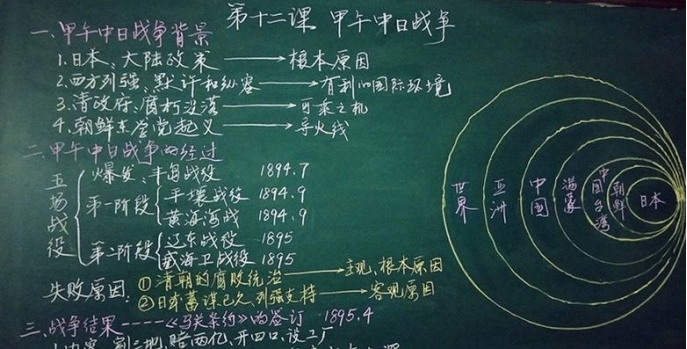 第十二课 甲午中日战争
一、甲午中日战争背景
1.日本、大陆政策 → 根本原因
2.西方列强、默许和纵容 → 有利的国际环境
3.清政府、腐朽没落 → 可乘之机
4.朝鲜东学党起义 → 导火线
二、甲午中日战争的经过
五场战役
爆发:丰岛战役 1894.7
第一阶段 平壤战役 1894.9
黄海海战 1894.9
第二阶段 辽东战役 1895
威海卫战役 1895
失败原因:①清朝的腐败统治 → 主观、根本原因
②日本蓄谋已久,列强支持 → 客观原因
三、战争结果----《马关条约》的签订 1895.4
割三地,赔两亿,开四口,设工厂
世界
亚洲
中国
满蒙
中国台湾
朝鲜
日本